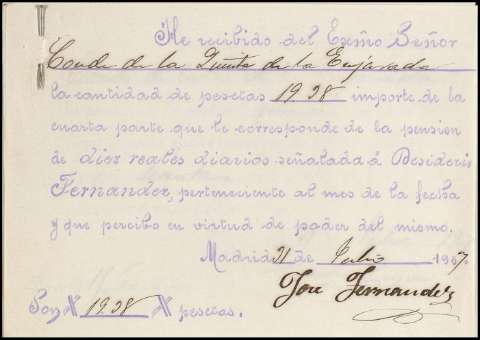 He recibido del Excmo Señor
Conde de la Quinta de la Enjarada
la cantidad de pesetas 19'38 importe de la
cuarta parte que le corresponde de la pension
de diez reales diarios señalada á Desiderio
Fernandez, perteneciente al mes de la fecha
y que percibo en virtud de poder del mismo.
Madrid 31 de Julio 1907
José Fernandez
Son # 19'38 # pesetas.